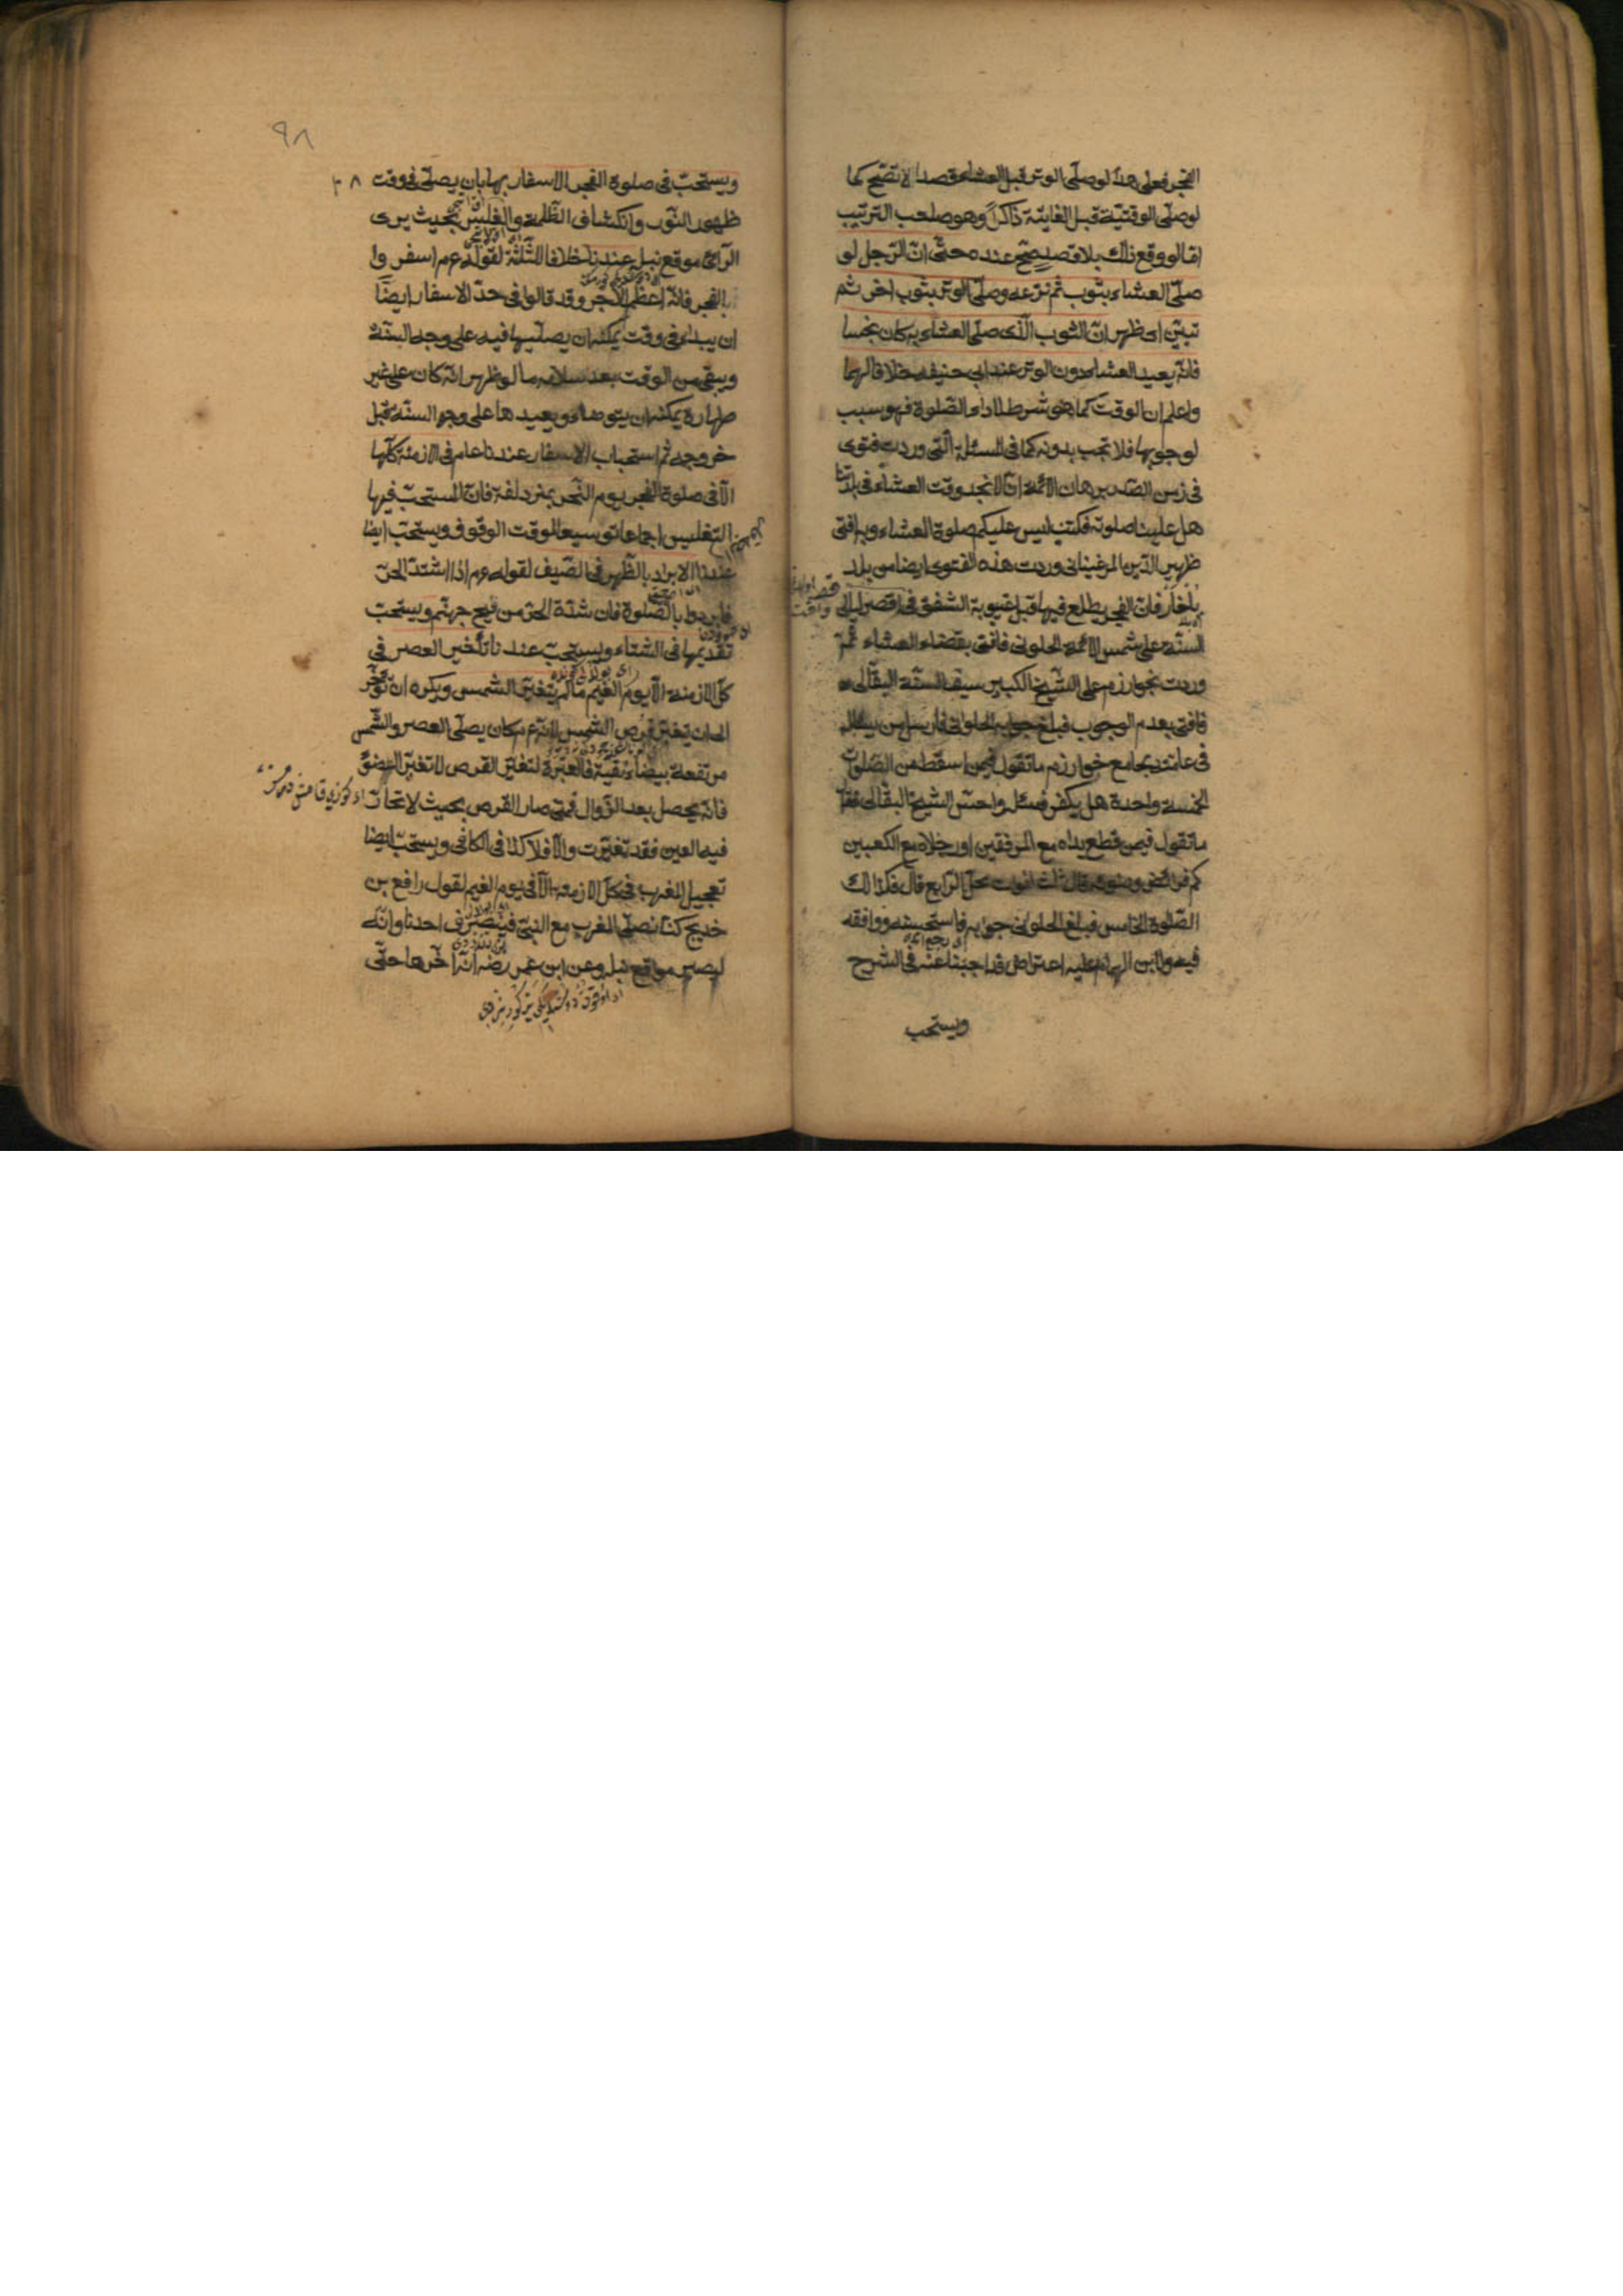 الفجر فعلى هذا لو صلّى الوتر قبل العشاء قصدا لا تصّح كما
لو صلّى الوقتيّة قبل الفايتة ذاكرًا وهو صاحب الترتيب
امّا لو وقع ذلك بلا قصد يصّح عنده حتّى انّ الرّجل لو
صلّى العشاء بثوب ثم نزعه وصلّى الوتر بثوب اخر ثم
تبيّن اى ظهر انّ الثوب الّذى صلّى العشاء به كان نجسا
فانّه يعيد العشاء دون الوتر عند ابى حنيفه خلافا لهما
واعلم ان الوقت كما هو شرط لاداء الصّلوة فهو سبب
لوجوبها فلا تجب بدونه كما فى المسئلة الّتى وردت فتوى
فى زمن الصّدر برهان الائمّة انّا لا نجد وقت العشاء فى بلدتنا
هل علينا صلوته فكتب ليس عليكم صلوة العشاء وبه افتى
ظهير الدّين المرغينانى وردت هذه الفتوى ايضا من بلد
بلغار فانّ الفجر يطلع فيها قبل غيبوبة الشفق فى اقصر ليالى
السنّة على شمس الائمّة الحلوانى فافتى بقضاء العشاء ثمّ
وردت بخوارزم على الشّيخ الكبير سيف السنّة البقّالى
فافتى بعدم الوجوب فبلغ جوابه الحلوانى فارسل من يسأله
فى عامّته بجامع خوارزم ما تقول فيمن اسقط من الصّلوات
الخمسة واحدة هل يكفر فسئل واحسّ الشيخ البقّالى فقال
ما تقول فيمن قطع يداه مع المرفقين او رجلاه مع الكعبين
كم فرائض وضوئه قال ثلث لفوات محلّ الرّابع قال فكذالك
الصّلوة الخامس فبلغ الحلوانى جوابه فاستحسنه ووافقه
فيه ولابن الهمام عليه اعتراض قد اجبنا عنه فى الشرح
ويستحب
٩٨
ويستحبّ فى صلوة الفجر الاسفار بها بان يصلّى فى وقت
ظهور النّور وانكشاف الظّلمة والغلس بحيث يرى
الرّائى موقع نبله عندنا خلافا للثّلثة لقوله عم اسفروا
بالفجر فانّه اعظم للاجر وقد قالوا فى حدّ الاسفار ايضًا
ان يبداء فى وقت يمكنه ان يصلّيها فيه على وجه السنّة
ويبقى من الوقت بعد سلامه ما لو ظهر انّه كان على غير
طهارة يمكنه ان يتوضاء ويعيدها على وجه السنّة قبل
خروجه ثم استحباب الاسفار عندنا عام فى الازمنة كلّها
الّا فى صلوة الفجر يوم النّحر بمزدلفة فانّ المستحبّ فيها
التغليس اجماعا توسيعا لوقت الوقوف ويستحبّ ايضا
عندنا الابراد بالظّهر فى الصّيف لقوله عم اذا اشتدّ الحرّ
فابردوا بالصّلوة فان شدّة الحرّ من فيح جهنّم ويستحب
تقديمها فى الشتاء ويستحبّ عندنا تأخير العصر فى
كلّ الازمنة الّا يوم الغيم ما لم يتغيّر الشمس ويكره ان تؤخّر
الى ان يتغيّر قرص الشمس لانّه عم كان يصلّى العصر والشّمس
مرتفعة بيضاء نقيّة فالعبرة لتغيّر القرص لا تغيّر الضوّ
فانّه يحصل بعد الزّوال فمتى صار القرص بحيث لا تحار
فيه العين فقد تغيّرت والّا فلا كذا فى الكافى ويستحبّ ايضا
تعجيل المغرب فى كلّ الازمنة الّا فى يوم الغيم لقول رافع بن
خديج كنّا نصلّى المغرب مع النبىّ فينصرف احدنا وانّه
ليصير مواقع نبله وعن ابن عمر رضه انّه آخّرها حتّى